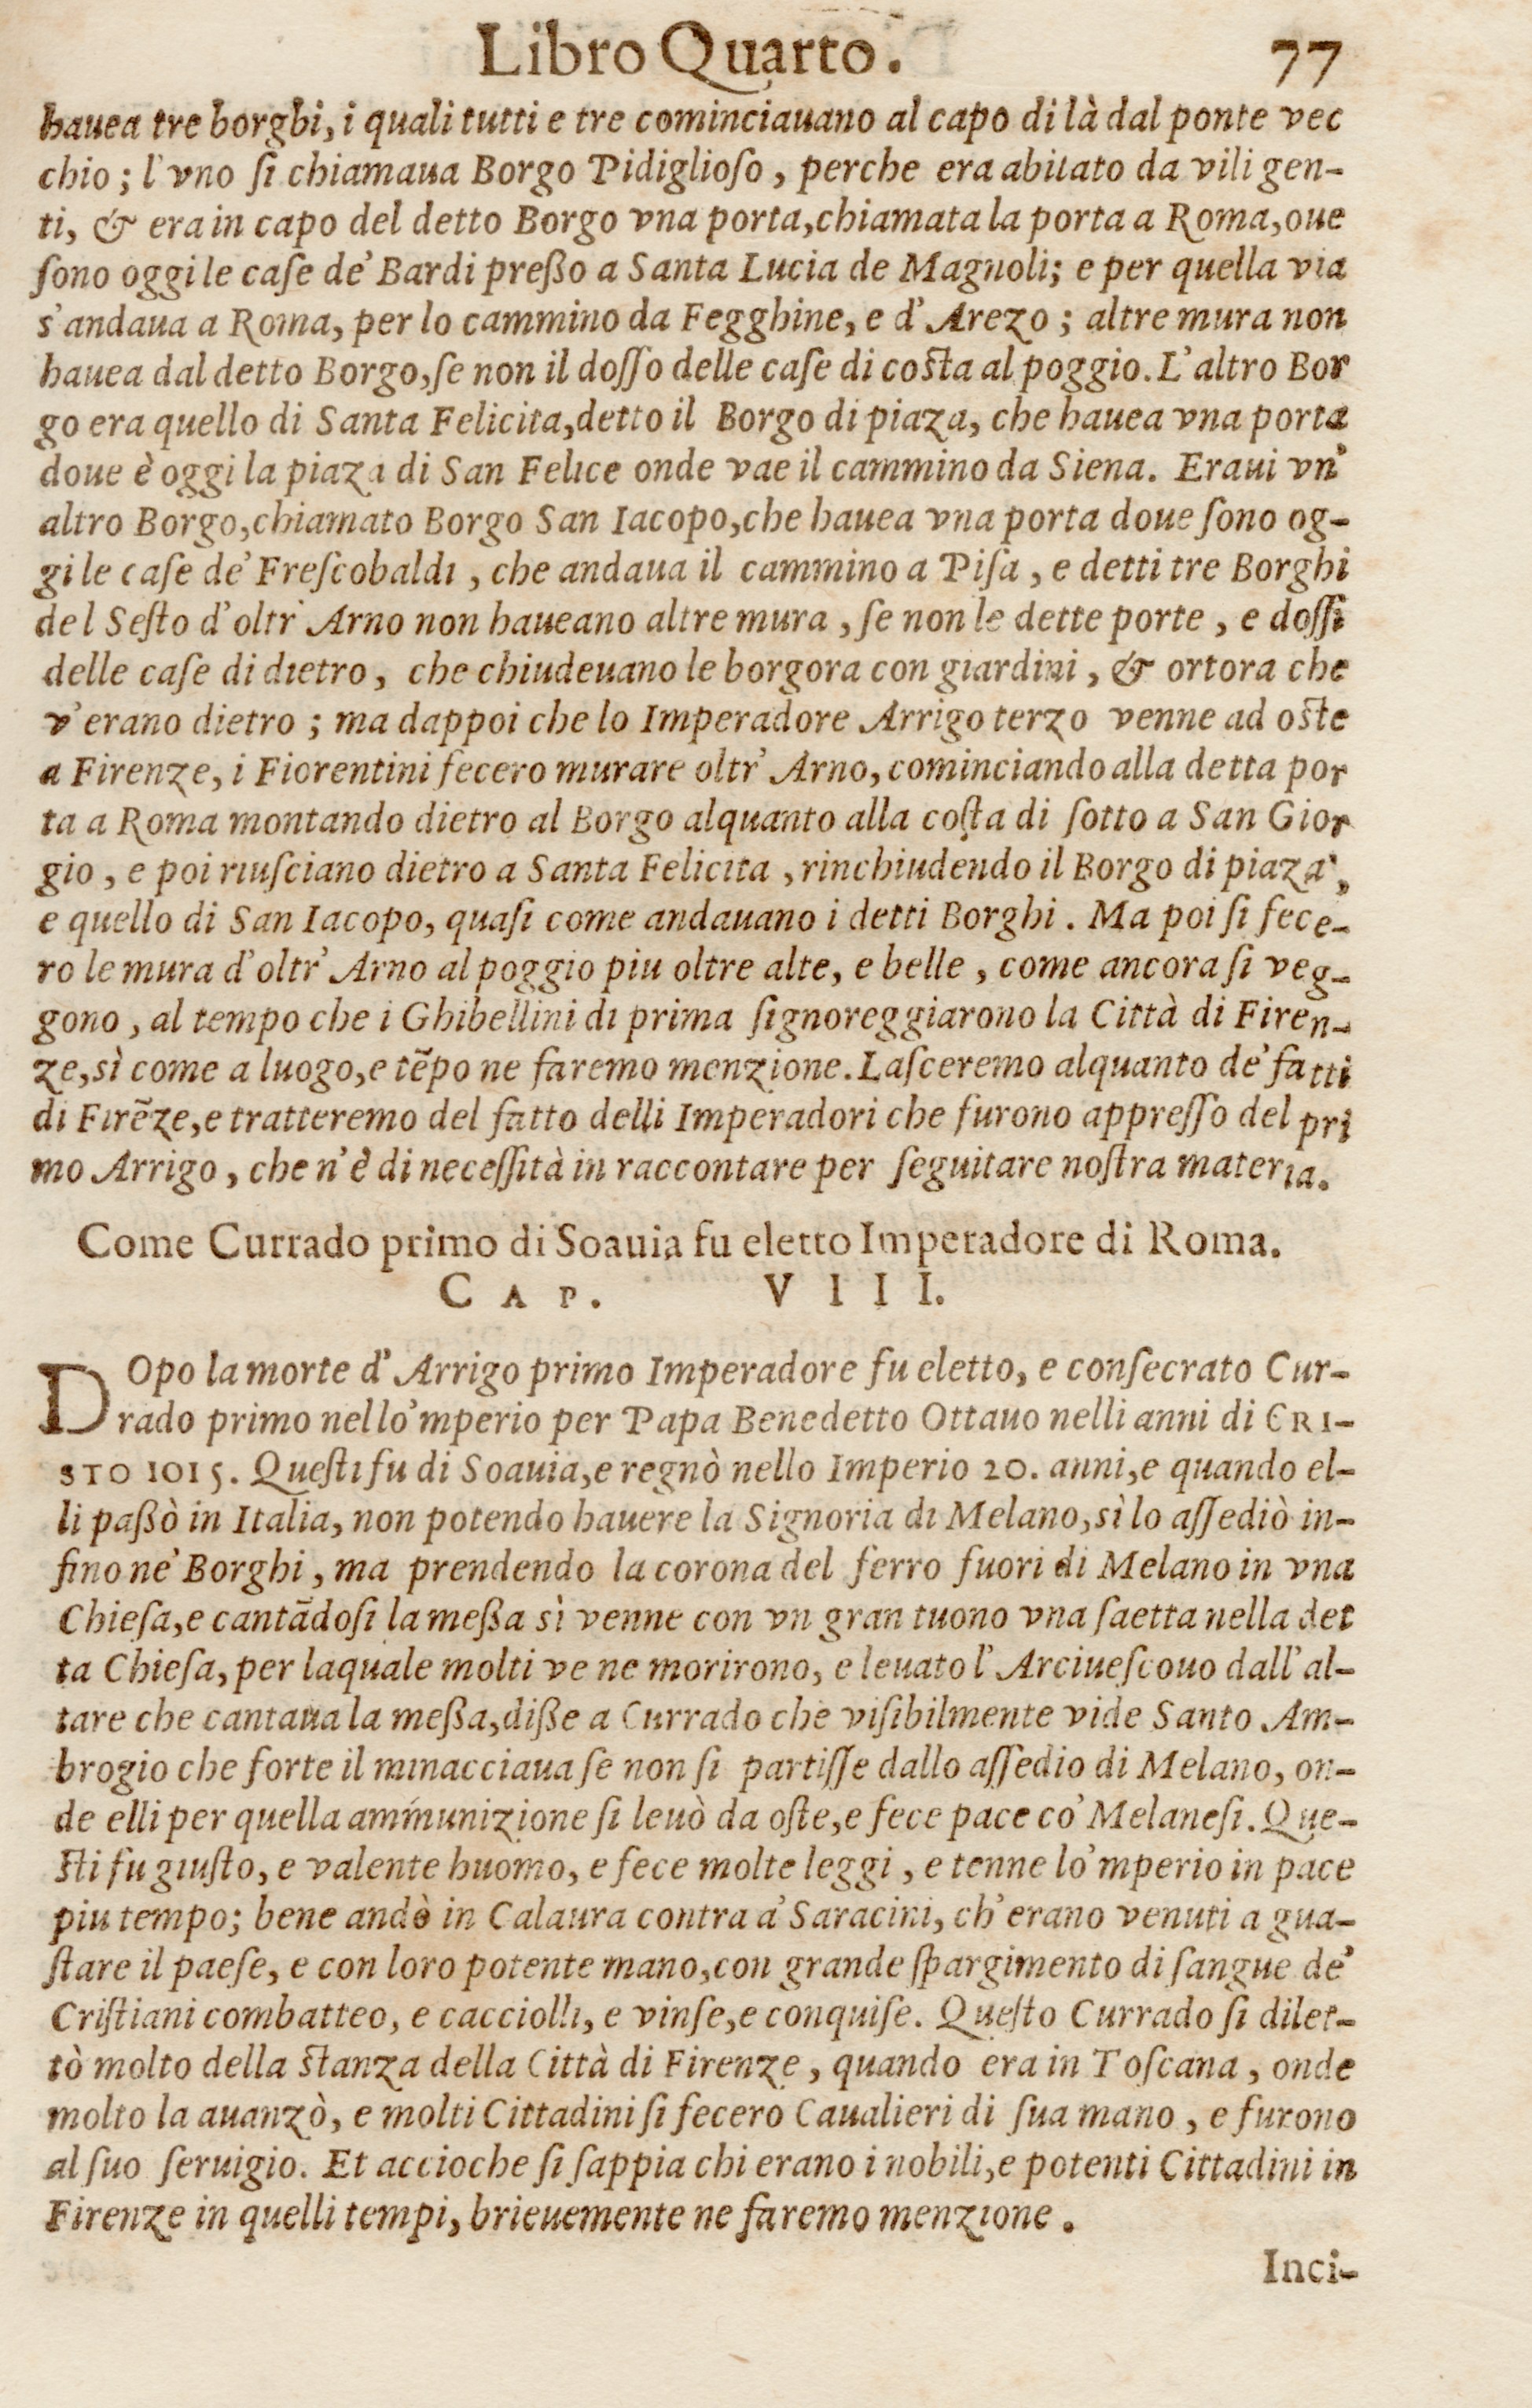 Libro Quarto. 77
hauea tre borghi, i quali tutti e tre cominciauano al capo di là dal ponte vec
chio; l'vno ſi chiamaua Borgo Pidiglioſo, perche era abitato da vili gen-
ti, & era in capo del detto Borgo vna porta, chiamata la porta a Roma, oue
ſono oggi le caſe de' Bardi preßo a Santa Lucia de Magnoli; e per quella via
s'andaua a Roma, per lo cammino da Fegghine, e d'Arezo; altre mura non
hauea dal detto Borgo, ſe non il doſſo delle caſe di coſta al poggio. L'altro Bor
go era quello di Santa Felicita, detto il Borgo di piaza, che hauea vna porta
doue è oggi la piaza di San Felice onde vae il cammino da Siena. Eraui vn'
altro Borgo, chiamato Borgo San Iacopo, che hauea vna porta doue ſono og-
gi le caſe de' Freſcobaldi, che andaua il cammino a Piſa, e detti tre Borghi
del Seſto d'oltr'Arno non haueano altre mura, ſe non le dette porte, e doſſi
delle caſe di dietro, che chiudeuano le borgora con giardini, & ortora che
v'erano dietro; ma dappoi che lo Imperadore Arrigo terzo venne ad oſte
a Firenze, i Fiorentini fecero murare oltr'Arno, cominciando alla detta por
ta a Roma montando dietro al Borgo alquanto alla coſta di ſotto a San Gior
gio, e poi riuſciano dietro a Santa Felicita, rinchiudendo il Borgo di piaza,
e quello di San Iacopo, quaſi come andauano i detti Borghi. Ma poi ſi fece-
ro le mura d'oltr'Arno al poggio piu oltre alte, e belle, come ancora ſi veg-
gono, al tempo che i Ghibellini di prima ſignoreggiarono la Città di Firen-
ze, sì come a luogo, e tẽpo ne faremo menzione. Laſceremo alquanto de' fatti
di Firẽze, e tratteremo del fatto delli Imperadori che furono appreſſo del pri
mo Arrigo, che n'è di neceſſità in raccontare per ſeguitare noſtra materia.
Come Currado primo di Soauia fu eletto Imperadore di Roma.
CAP. VIII.
DOpo la morte d'Arrigo primo Imperadore fu eletto, e conſecrato Cur-
rado primo nello'mperio per Papa Benedetto Ottauo nelli anni di CRI-
STO 1015. Queſti fu di Soauia, e regnò nello Imperio 20. anni, e quando el-
li paßò in Italia, non potendo hauere la Signoria di Melano, sì lo aſſediò in-
fino ne' Borghi, ma prendendo la corona del ferro fuori di Melano in vna
Chieſa, e cantãdoſi la meßa sì venne con vn gran tuono vna ſaetta nella det
ta Chieſa, per laquale molti ve ne morirono, e leuato l'Arciueſcouo dall'al-
tare che cantaua la meßa, diße a Currado che viſibilmente vide Santo Am-
brogio che forte il minacciaua ſe non ſi partiſſe dallo aſſedio di Melano, on-
de elli per quella ammunizione ſi leuò da oſte, e fece pace co' Melaneſi. Que-
ſti fu giuſto, e valente huomo, e fece molte leggi, e tenne lo'mperio in pace
piu tempo; bene andò in Calaura contra a' Saracini, ch'erano venuti a gua-
ſtare il paeſe, e con loro potente mano, con grande ſpargimento di ſangue de'
Criſtiani combatteo, e cacciolli, e vinſe, e conquiſe. Queſto Currado ſi dilet-
tò molto della ſtanza della Città di Firenze, quando era in Toſcana, onde
molto la auanzò, e molti Cittadini ſi fecero Caualieri di ſua mano, e furono
al ſuo ſeruigio. Et accioche ſi ſappia chi erano i nobili, e potenti Cittadini in
Firenze in quelli tempi, brieuemente ne faremo menzione.
Inci-